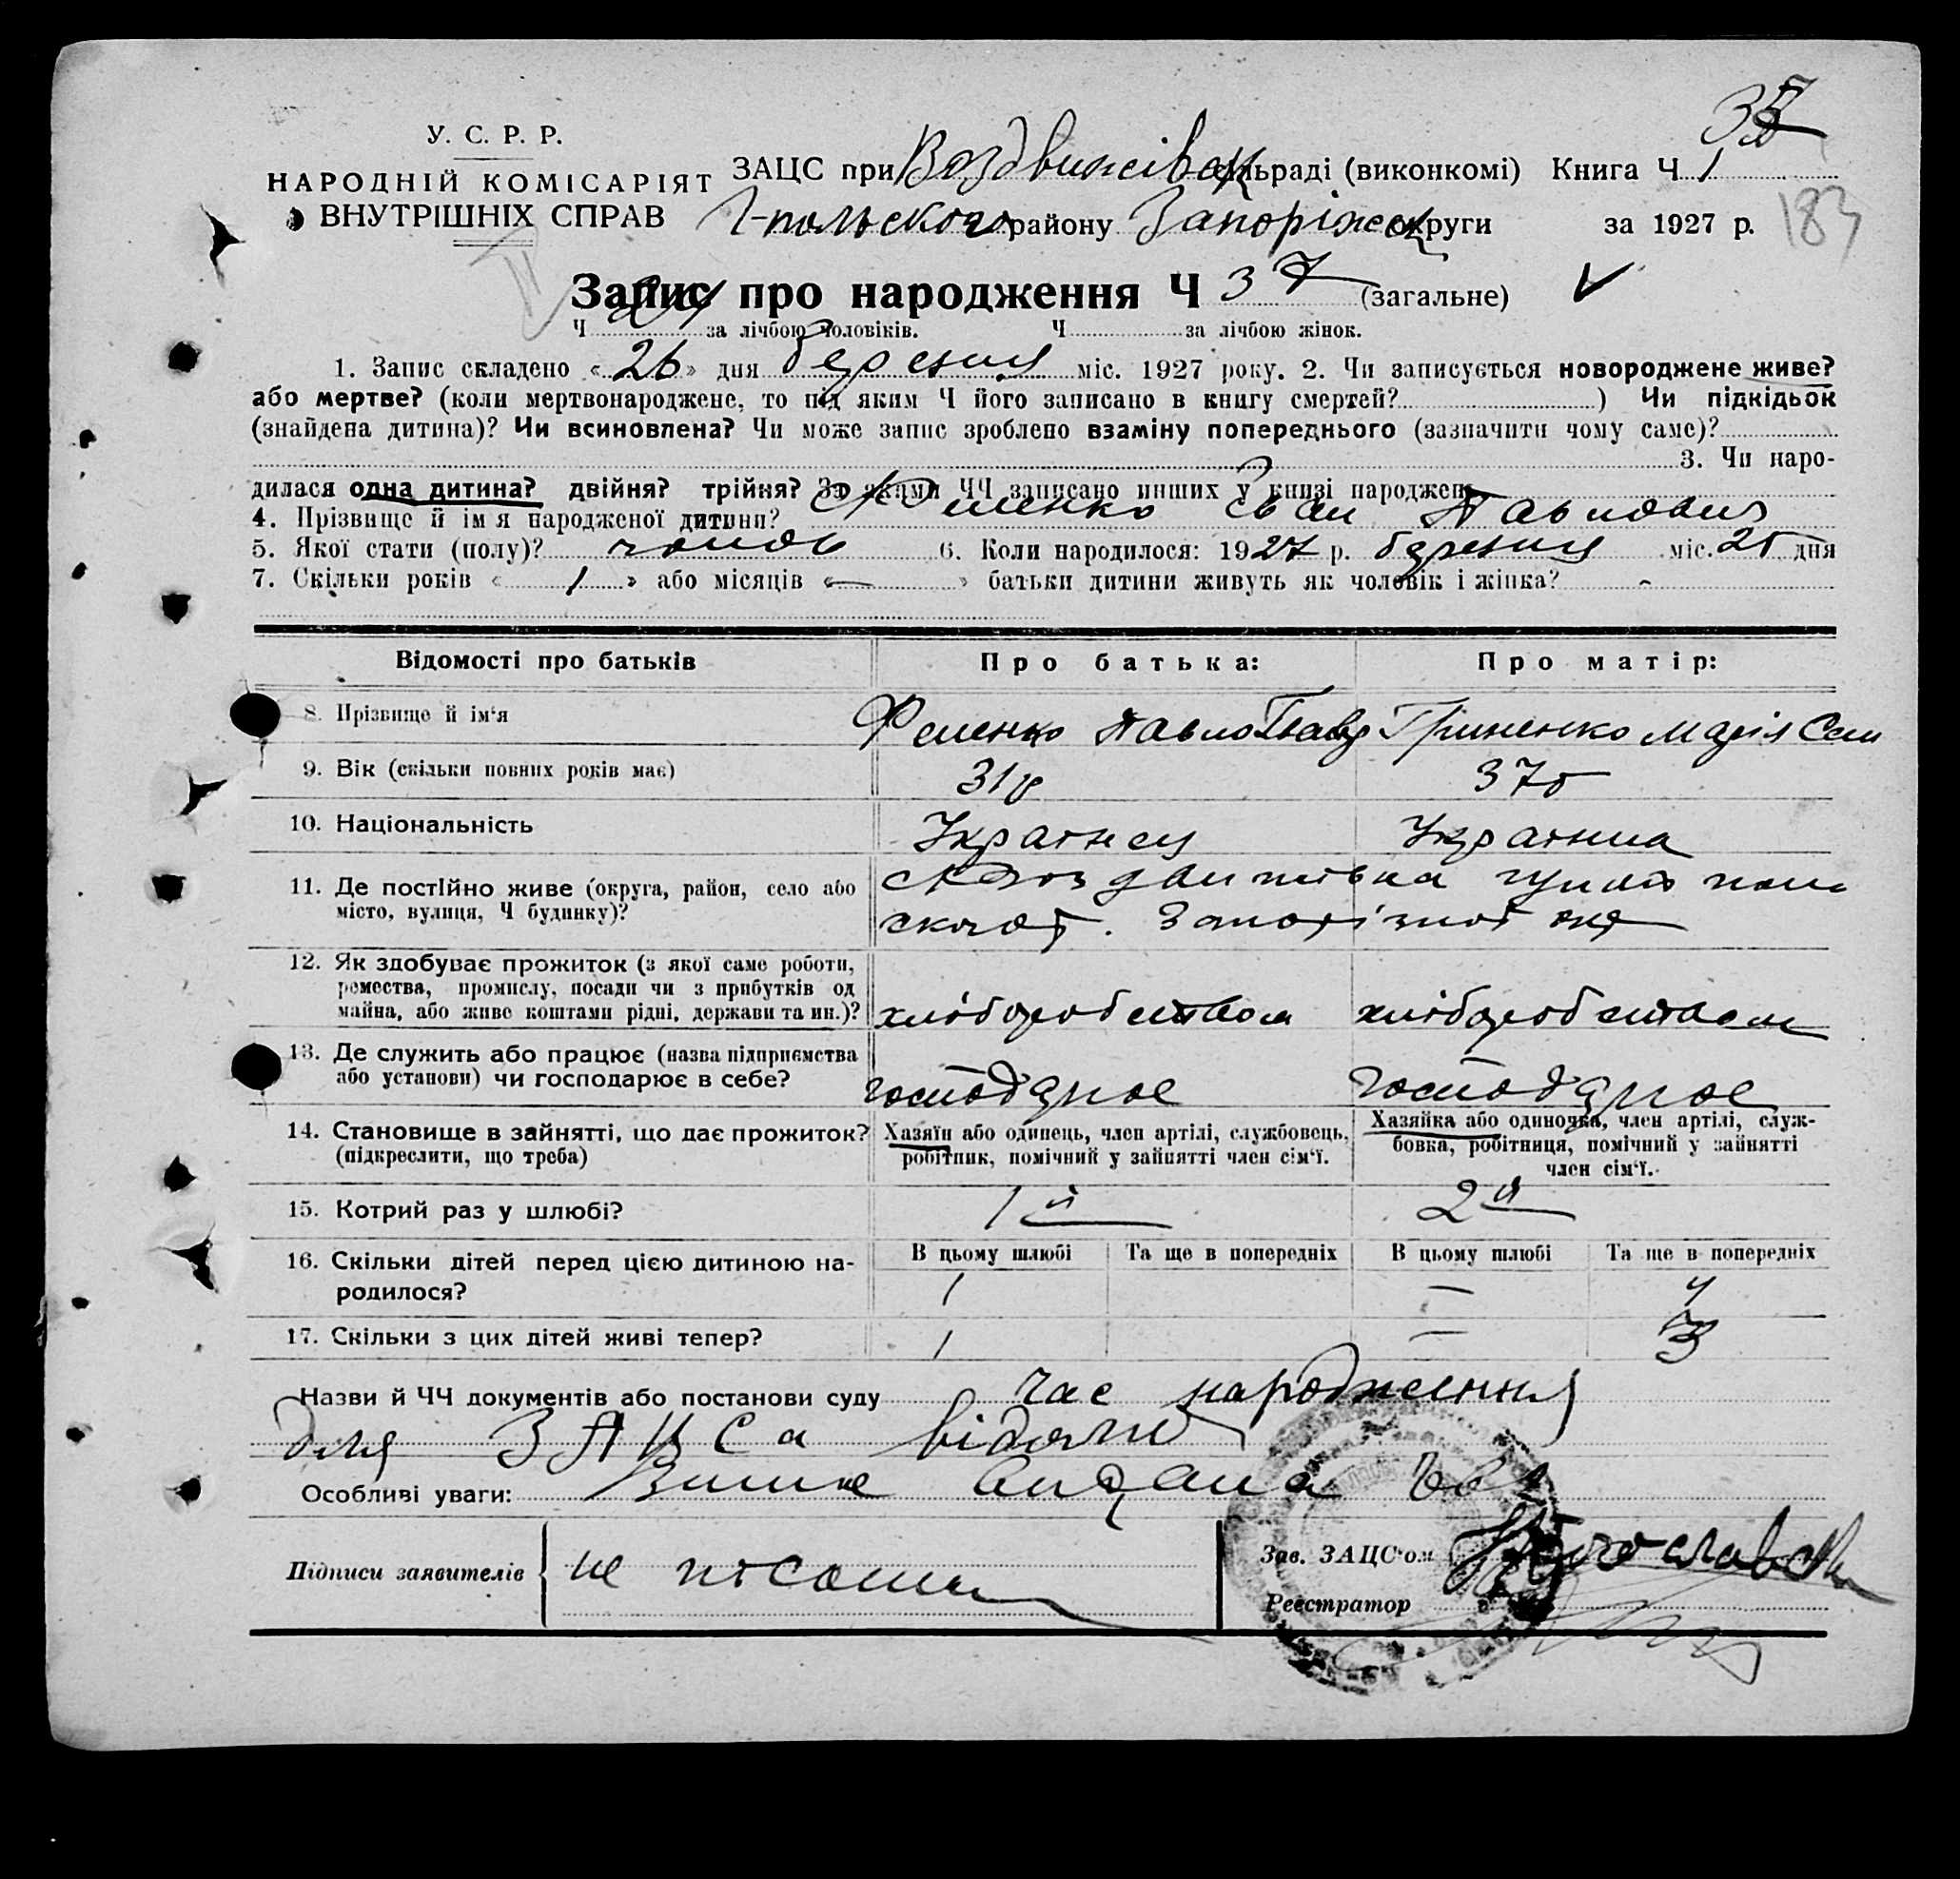 37
У. С. Р. Р.
НАРОДНІЙ КОМІСАРІЯТ
ВНУТРІШНІХ СПРАВ
ЗАЦС при Воздвижівск сільраді (виконкомі) Книга Ч. 1
Г-польского району Запоріжск округи за 1927 р. 183
Запис про народження Ч 37 (загальне)
Ч за лічбою чоловіків. Ч за лічбою жінок.
1. Запис складено «26» дня березня міс. 1927 року. 2. Чи записується новороджене живе?
або мертве? (коли мертвонароджене, то під яким Ч його записано в книгу смертей? ) Чи підкідьок
(знайдена дитина)? Чи всиновлена? Чи може запис зроблено взаміну попереднього (зазначити чому саме)?
3. Чи наро-
дилася одна дитина? двійня? трійня? За якими ЧЧ записано инших у книзі народжень
4. Прізвище й ім'я народженої дитини? Феменко Іван Павлович
5. Якої стати (полу)? чолов 6. Коли народилося: 1927 р. березня міс. 25 дня
7. Скільки років «1» або місяців «—» батьки дитини живуть як чоловік і жінка?
Відомості про батьків Про батька: Про матір:
8. Прізвище й ім'я Феменко Павло Грименко Марія Сем
9. Вік (скільки повних років має) 31р 37р
10. Національність Українец Українка
11. Де постійно живе (округа, район, село або
місто, вулиця, Ч будинку)?
с Воздвижівка Гуляй поль
ского р. Запорізької окр
12. Як здобуває прожиток (з якої саме роботи,
ремества, промислу, посади чи з прибутків од
майна, або живе коштами рідні, держави та ин.)? хліборобством хліборобством
13. Де служить або працює (назва підприємства
або установи) чи господарює в себе? господарює господарює
14. Становище в зайнятті, що дає прожиток?
(підкреслити, що треба)
Хазяїн або одинець, член артілі, службовець,
робітник, помічний у зайнятті член сім'ї.
Хазяйка або одиночка, член артілі, служ-
бовка, робітниця, помічний у зайнятті
член сім'ї.
15. Котрий раз у шлюбі? 1й 2й
16. Скільки дітей перед цією дитиною на-
родилося?
В цьому шлюбі Та ще в попередніх В цьому шлюбі Та ще в попередніх
1 — 4
17. Скільки з цих дітей живі тепер? 1 — 3
Назви й ЧЧ документів або постанови суду час народження
для ЗАЦСа відомо
Особливі уваги:
Підписи заявителів не писоми
Зав. ЗАЦС'ом
Реєстратор